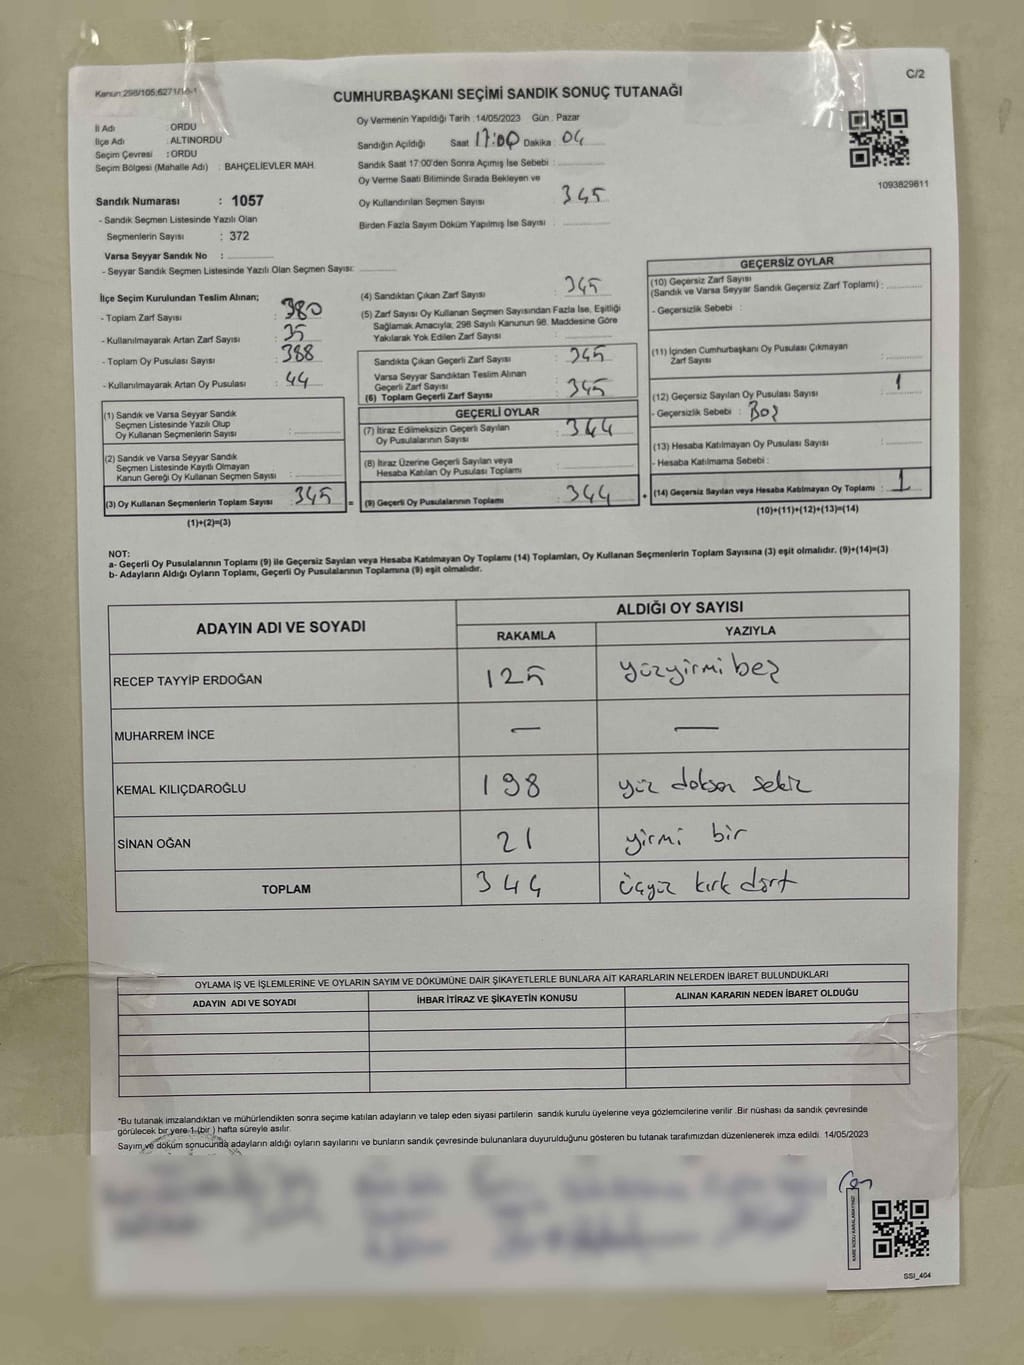 C/2
Kanun:298/105;6271/18-1
CUMHURBAŞKANI SEÇİMİ SANDIK SONUÇ TUTANAĞI
İl Adı : ORDU
İlçe Adı : ALTINORDU
Seçim Çevresi : ORDU
Seçim Bölgesi (Mahalle Adı) : BAHÇELİEVLER MAH.
Sandık Numarası : 1057
- Sandık Seçmen Listesinde Yazılı Olan
Seçmenlerin Sayısı : 372
Varsa Seyyar Sandık No :
- Seyyar Sandık Seçmen Listesinde Yazılı Olan Seçmen Sayısı:
Oy Vermenin Yapıldığı Tarih : 14/05/2023 Gün : Pazar
Sandığın Açıldığı Saat 17:00 Dakika : 04
Sandık Saat 17:00'den Sonra Açımış İse Sebebi :
Oy Verme Saati Bitiminde Sırada Bekleyen ve
Oy Kullandırılan Seçmen Sayısı : 345
Birden Fazla Sayım Döküm Yapılmış İse Sayısı :
1093829611
İlçe Seçim Kurulundan Teslim Alınan;
- Toplam Zarf Sayısı : 380
- Kullanılmayarak Artan Zarf Sayısı : 35
- Toplam Oy Pusulası Sayısı : 388
- Kullanılmayarak Artan Oy Pusulası : 44
(1) Sandık ve Varsa Seyyar Sandık
Seçmen Listesinde Yazılı Olup
Oy Kullanan Seçmenlerin Sayısı :
(2) Sandık ve Varsa Seyyar Sandık
Seçmen Listesinde Kayıtlı Olmayan
Kanun Gereği Oy Kullanan Seçmen Sayısı :
(3) Oy Kullanan Seçmenlerin Toplam Sayısı : 345 =
(1)+(2)=(3)
(4) Sandıktan Çıkan Zarf Sayısı : 345
(5) Zarf Sayısı Oy Kullanan Seçmen Sayısından Fazla İse, Eşitliği
Sağlamak Amacıyla, 298 Sayılı Kanunun 98. Maddesine Göre
Yakılarak Yok Edilen Zarf Sayısı :
Sandıkta Çıkan Geçerli Zarf Sayısı : 345
Varsa Seyyar Sandıktan Teslim Alınan
Geçerli Zarf Sayısı :
(6) Toplam Geçerli Zarf Sayısı : 345
GEÇERLİ OYLAR
(7) İtiraz Edilmeksizin Geçerli Sayılan
Oy Pusulalarının Sayısı : 344
(8) İtiraz Üzerine Geçerli Sayılan veya
Hesaba Katılan Oy Pusulası Toplamı :
(9) Geçerli Oy Pusulalarının Toplamı : 344 +
GEÇERSİZ OYLAR
(10) Geçersiz Zarf Sayısı
(Sandık ve Varsa Seyyar Sandık Geçersiz Zarf Toplamı) :
- Geçersizlik Sebebi :
(11) İçinden Cumhurbaşkanı Oy Pusulası Çıkmayan
Zarf Sayısı :
(12) Geçersiz Sayılan Oy Pusulası Sayısı : 1
- Geçersizlik Sebebi : Boş
(13) Hesaba Katılmayan Oy Pusulası Sayısı :
- Hesaba Katılmama Sebebi :
(14) Geçersiz Sayılan veya Hesaba Katılmayan Oy Toplamı : 1
(10)+(11)+(12)+(13)=(14)
NOT:
a- Geçerli Oy Pusulalarının Toplamı (9) ile Geçersiz Sayılan veya Hesaba Katılmayan Oy Toplamı (14) Toplamları, Oy Kullanan Seçmenlerin Toplam Sayısına (3) eşit olmalıdır. (9)+(14)=(3)
b- Adayların Aldığı Oyların Toplamı, Geçerli Oy Pusulalarının Toplamına (9) eşit olmalıdır.
ADAYIN ADI VE SOYADI ALDIĞI OY SAYISI
RAKAMLA YAZIYLA
RECEP TAYYİP ERDOĞAN 125 yüzyirmi beş
MUHARREM İNCE — —
KEMAL KILIÇDAROĞLU 198 yüz doksan sekiz
SİNAN OĞAN 21 yirmi bir
TOPLAM 344 üçyüz kırk dört
OYLAMA İŞ VE İŞLEMLERİNE VE OYLARIN SAYIM VE DÖKÜMÜNE DAİR ŞİKAYETLERLE BUNLARA AİT KARARLARIN NELERDEN İBARET BULUNDUKLARI
ADAYIN ADI VE SOYADI İHBAR İTİRAZ VE ŞİKAYETİN KONUSU ALINAN KARARIN NEDEN İBARET OLDUĞU
*Bu tutanak imzalandıktan ve mühürlendikten sonra seçime katılan adayların ve talep eden siyasi partilerin sandık kurulu üyelerine veya gözlemcilerine verilir .Bir nüshası da sandık çevresinde
görülecek bir yere 1 (bir ) hafta süreyle asılır.
Sayım ve döküm sonucunda adayların aldığı oyların sayılarını ve bunların sandık çevresinde bulunanlara duyurulduğunu gösteren bu tutanak tarafımızdan düzenlenerek imza edildi. 14/05/2023
KARE KODU KARALAMAYINIZ
SSI_404